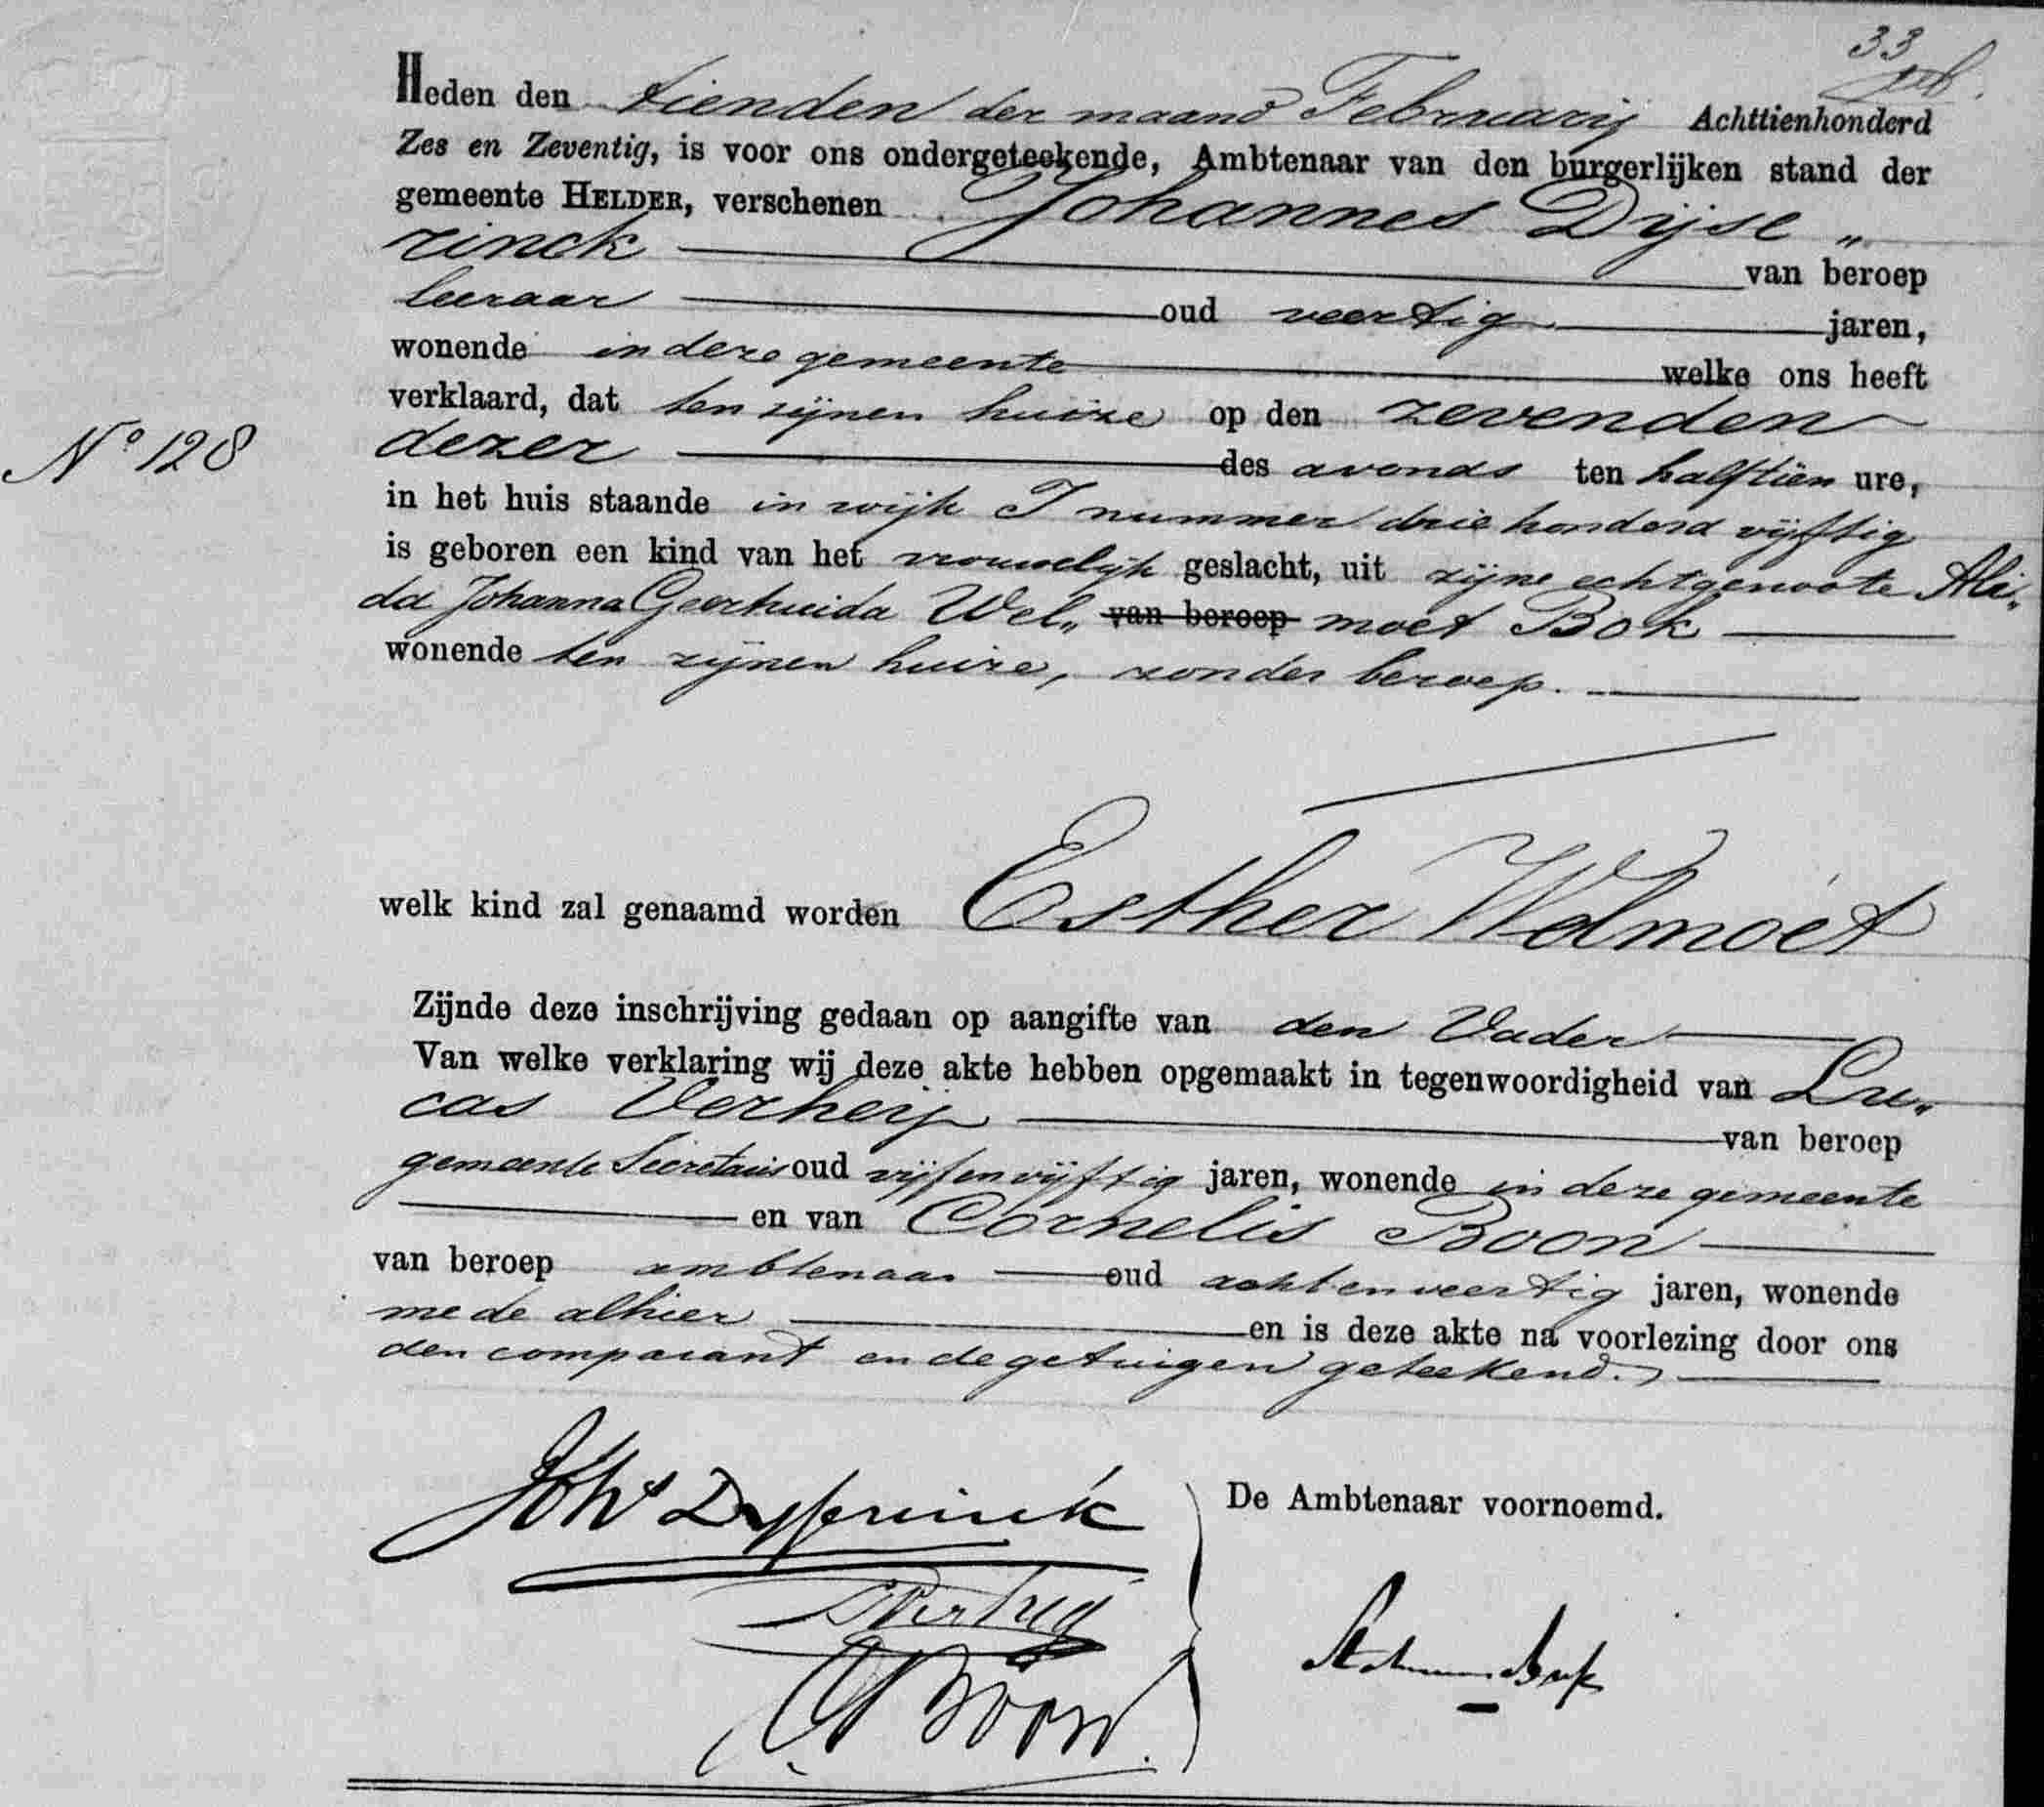 33
Heden den tienden der maand Februarij Achttienhonderd
Zes en Zeventig, is voor ons ondergeteekende, Ambtenaar van den burgerlijken stand der
gemeente HELDER, verschenen Johannes Dijse„
rinck van beroep
leeraar oud veertig jaren,
wonende in deze gemeente welke ons heeft
verklaard, dat ten zijnen huize op den zevenden
dezer des avonds ten halftien ure,
in het huis staande in wijk I nummer driehonderd vijftig
is geboren een kind van het vrouwelijk geslacht, uit zijne echtgenoote Ali„
da Johanna Geertruida Wel„ van beroep moet Bok
wonende ten zijnen huize, zonder beroep.
No 128
welk kind zal genaamd worden Esther Welmoet
Zijnde deze inschrijving gedaan op aangifte van den Vader
Van welke verklaring wij deze akte hebben opgemaakt in tegenwoordigheid van Lu„
cas Verheij van beroep
gemeente Secretaris oud vijfenvijftig jaren, wonende in deze gemeente
en van Cornelis Boon
van beroep ambtenaar oud achtenveertig jaren, wonende
mede alhier en is deze akte na voorlezing door ons
den comparant en de getuigen geteekend.
Johs Dyserinck
De Ambtenaar voornoemd.
LVerheij
CBoon.